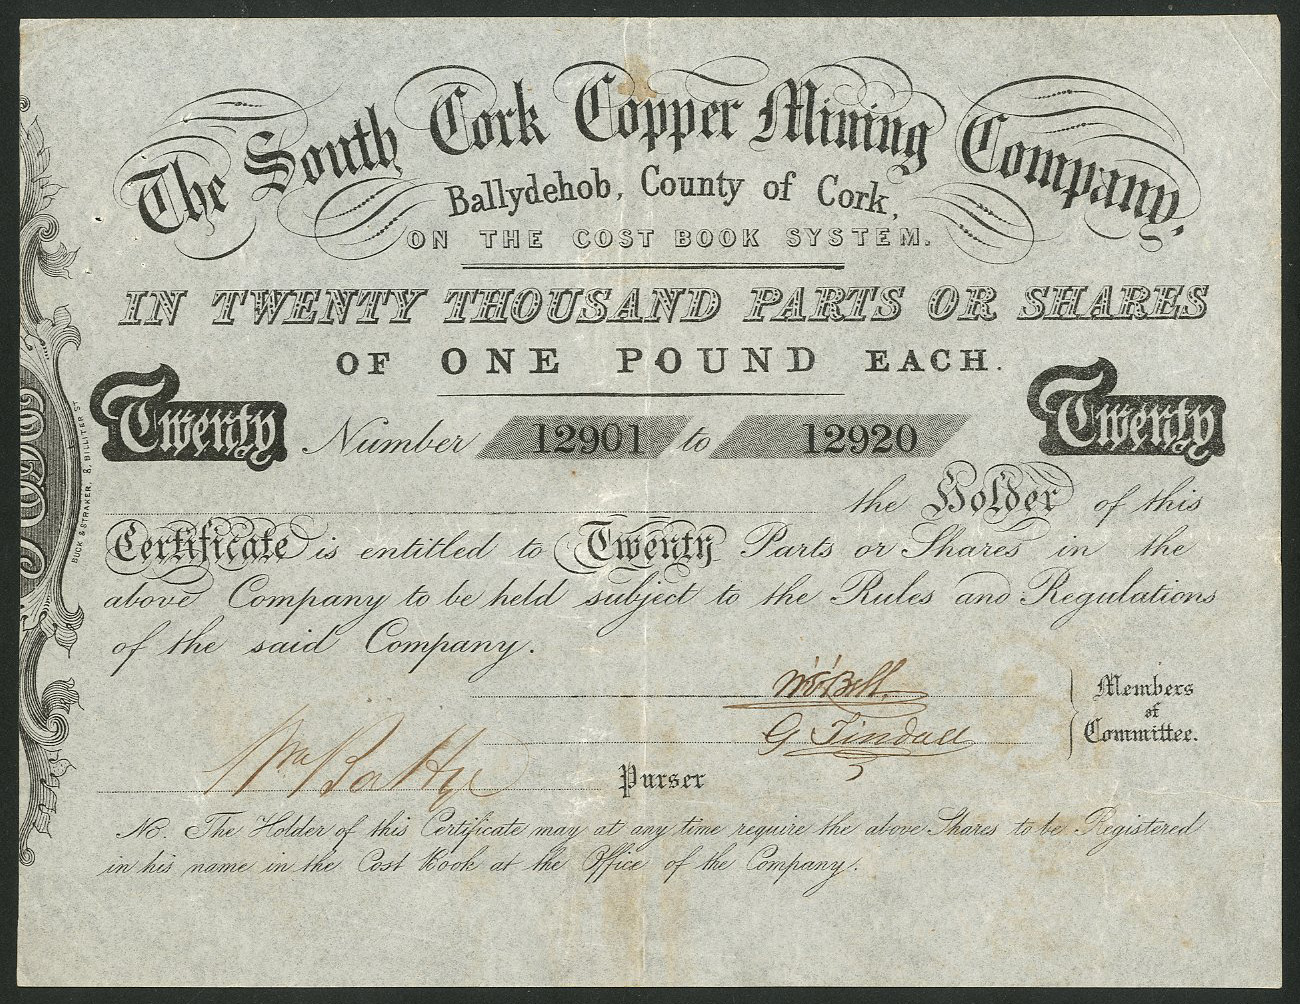 The South Cork Copper Mining Company,
Ballydehob, County of Cork,
ON THE COST BOOK SYSTEM.
IN TWENTY THOUSAND PARTS OR SHARES
OF ONE POUND EACH.
Twenty Number 12901 to 12920 Twenty
the Holder of this
Certificate is entitled to Twenty Parts or Shares in the
above Company to be held subject to the Rules and Regulations
of the said Company.
Members
of
Committee.
G Tindall
Wm
Purser
No. The Holder of this Certificate may at any time require the above Shares to be Registered
in his name in the Cost Book at the Office of the Company.
BUCK & STRAKER, 8, BILLITER ST